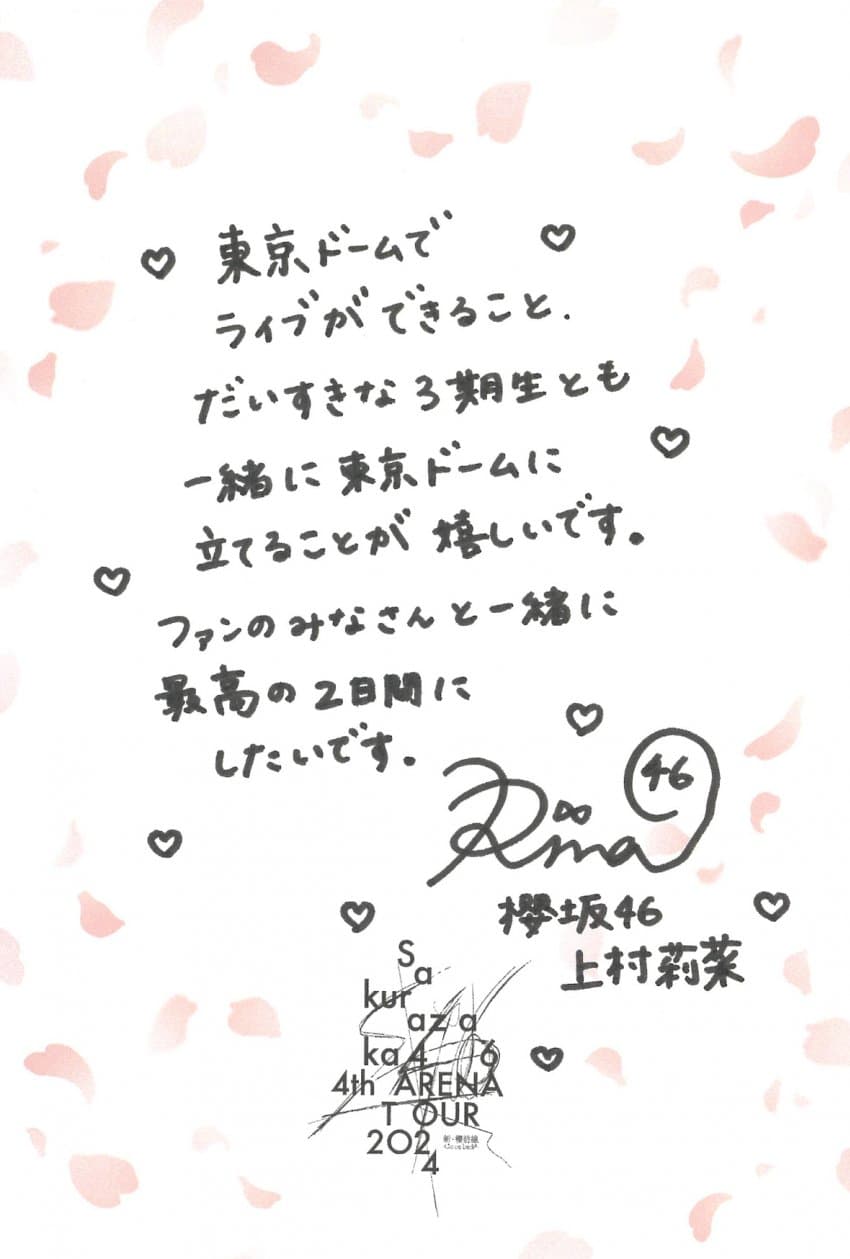 東京ドームで
ライブができること、
だいすきな3期生とも
一緒に東京ドームに
立てることが嬉しいです。
ファンのみなさんと一緒に
最高の2日間に
したいです。
46
Rina
櫻坂46
上村莉菜
Sa
kur
aza
ka46
4th ARENA
TOUR
2024
新・櫻前線